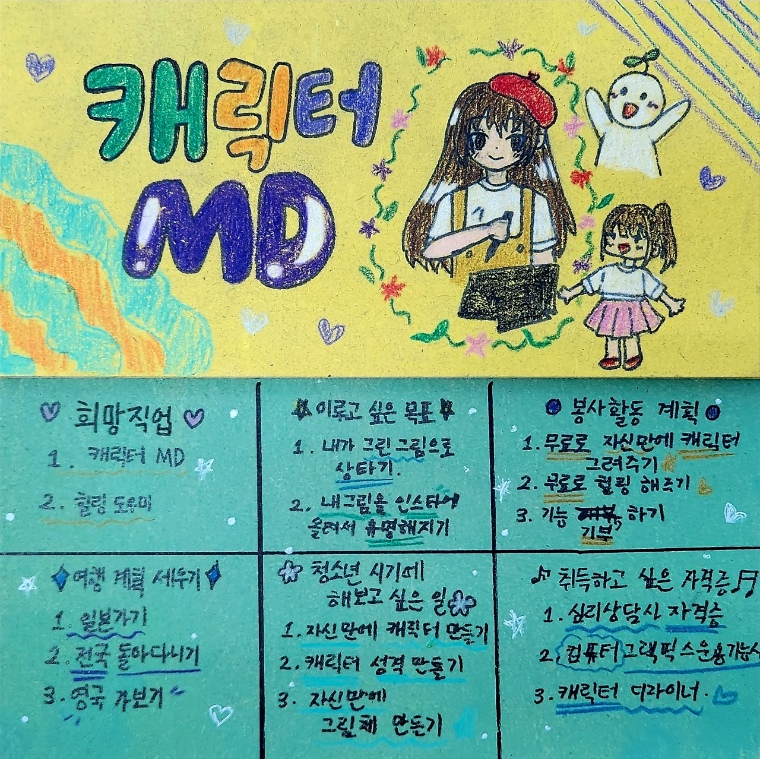 캐릭터
MD
희망직업
1. 캐릭터 MD
2. 힐링 도우미
이루고 싶은 목표
1. 내가 그린 그림으로
상타기.
2. 내그림을 인스타에
올려서 유명해지기
봉사활동 계획
1. 무료로 자신만에 캐릭터
그려주기
2. 무료로 힐링 해주기
3. 기능 하기
기부
여행 계획 세우기
1. 일본가기
2. 전국 돌아다니기
3. 영국 가보기
청소년 시기에
해보고 싶은 일
1. 자신만에 캐릭터 만들기
2. 캐릭터 성격 만들기
3. 자신만에
그림체 만든기
취득하고 싶은 자격증
1. 심리상담시 자격증
2. 컴퓨터 그랙픽스운용기능사
3. 캐릭터 디라이너.